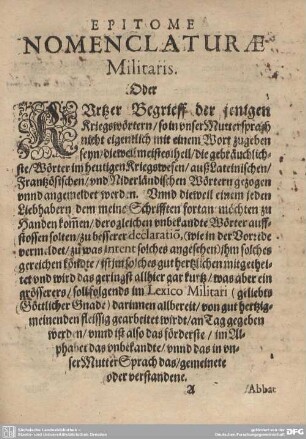 EPITOME
NOMENCLATURÆ
Militaris.
Oder
KUrtzer Begrieff der jenigen
Kriegswörtern / so in vnser Muttersprach
nicht eigentlich mit einem Wort zugeben
seyn / dieweil meistestheil / die gebräuchlich-
ste / Wörter im heutigen Kriegswesen / auß Lateinischen /
Frantzösischen / vnd Niderländischen Wörtern gezogen
vnnd angemeldet werden. Vnnd dieweil einem jeden
Liebhabern dem meine Schrifften fortan möchten zu
Handen kom̃en / dergleichen vnbekandte Wörter auff-
stossen solten / zu besserer declaratiō, (wie in der Vorrede
vermeldet / zu was intent solches angesehen) ihm solches
gereichen köndte / ist jm solches gut hertzlichen mitgethei-
let vnd wird das geringst allhier gar kurtz / was aber ein
grösserers / sol folgends im Lexico Militari (geliebts
Göttlicher Gnad) darinnen allbereit / von gut hertzig-
meinenden fleissig gearbeitet wirdt / an Tag gegeben
werden / vnnd ist also das förderste / im Al-
phabet das vnbekandte / vnnd das in vn-
ser Mutter Sprach das / gemeinete
oder verstandene.
A Abbat